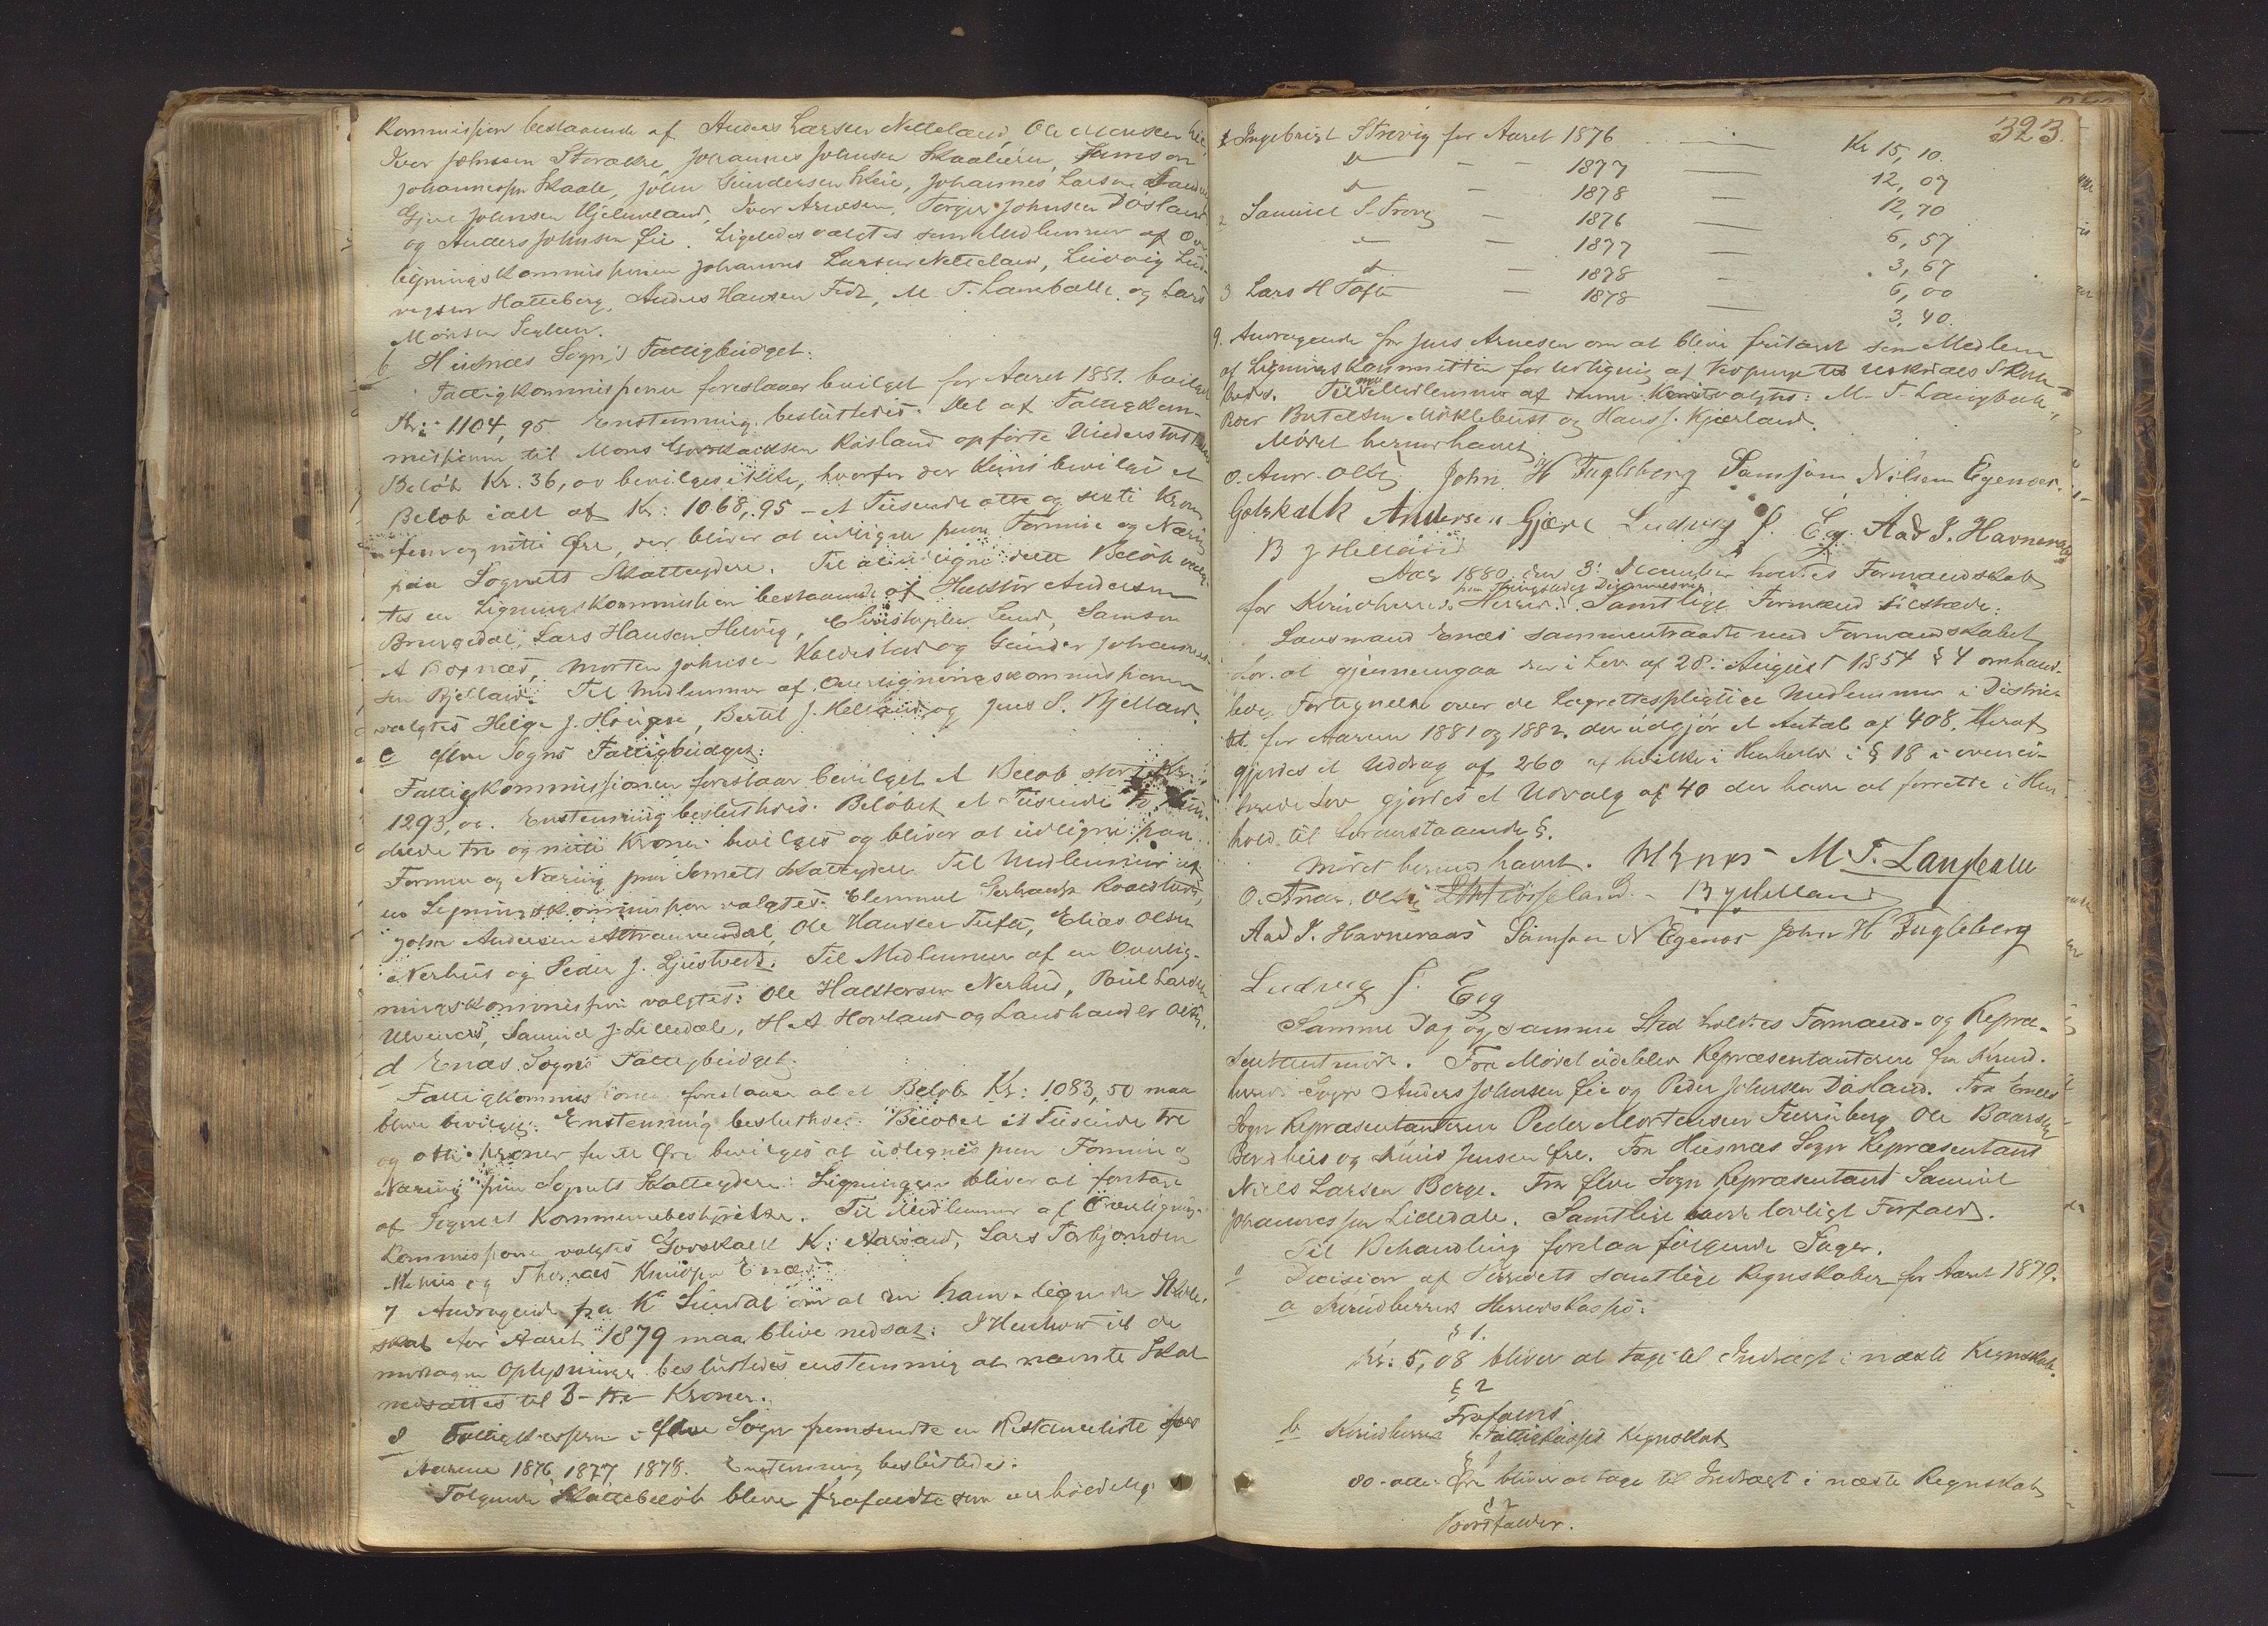 Kommission bestaaende af Anders Larsen Netteland, Ole Monsen
Iver Johnsen Storække, Johannes Johnsen Skaaluren, Samson
Johannessen Skaale, John Gundersen Skeie, Johannes Larsen
Gjert Johnsen Hjelmeland, Iver Arnesen, Torger Johnsen Døsland
og Anders Johnsen Øie. Ligeledes valgtes som Medlemmer af Over
ligningskommissionen Johannes Larsen Netteland, Ludvig Lud-
vigsen Hatteberg, Anders Hansen Fedt, M. T. Landballe og Lars
Monsen Seglem.
b Husnæs Sogn's Fattigbudget:
Fattigkommissionen foreslaaer bevilget for Aaret 1881. bevilget
Kr: 1104,95 Enstemmig besluttedes. Det af Fattigkom-
missionen til Mons Godskalksen Røsland opførte Understøttelse
Beløb Kr. 36,00 bevilges ikke, hvorfor der kuns bevilges et
Beløb ialt af Kr: 1068,95 - et Tusende otte og sexti Kroner
fem og nitti Øre, der bliver at udligne paa Formue og Næring
paa Sognets Skatteydere. Til at udligne dette Beløb valg-
tes en Ligningskommission bestaaende af Halstor Andersen
Bringedal, Lars Hansen Helvig, Christopher Lund, Samson
A Bognæs, Morten Johnsen Kaldestad og Gunder Johannes-
sen Bjelland. Til Medlemmer af Overligningskommissionen
valgtes Helge J. Hougse, Bertel J. Helland og Jens S. Bjelland.
c Ølve Sogns Fattigbudget:
Fattigkommissionen foreslaar bevilget et Beløb stort Kr:
1293,00. Enstemmig besluttedes. Beløbet et Tusende to Hun-
drede tre og nitti Kroner bevilges og bliver at udligne paa
Formue og Næring paa Sognets Skatteydere Til Medlemmer af
en Ligningskommission valgtes: Clemmet Gerhardsen
John Andersen Ottraunesdal, Ole Hansen Tufte, Elias Olsen
Nerhus og Peder J. Ljustvedt. Til Medlemmer af en Overlig-
ningskommission valgtes: Ole Haldorsen Nerhus, Poul Larsen
Ulvenæs, Samuel J. Lilledale, H. A. Hovland og Landhandler Olsen.
d Enæs Sogns Fattigbudget.
Fattigkommissionen foreslaar at et Beløb Kr: 1083,50 maa
blive bevilget. Enstemmig besluttedes: Beløbet et Tusende tre
og otti Kroner femti Øre bevilges at udlignes paa Formue og
Næring paa Sognets Skatteydere. Ligningen bliver at foretage
af Sognets Kommunebestyrelse. Til Medlemmer af Overlignings-
kommissionen valgtes Godskalk K. Aarsand, Lars Torbjørnsen
Mehus og Thomas Knudsen Enæs.
7 Andragende fra K Sundal om at den ham ilignede Skole-
skat for Aaret 1879 maa blive nedsat: I Henhold til de
modtagne Oplysninger besluttedes enstemmig at nævnte Skat
nedsattes til 3 - tre Kroner.
8 Fattigkassen i Ølve Sogn fremsendte en Restanceliste for
Aarene 1876, 1877, 1878. Enstemmig besluttedes:
Følgende Skattebeløb bleve frafaldte som uerholdelig
323.
1 Ingebrigt Strøvig for Aaret 1876 Kr 15,10.
do - - 1877 12,07
do - 1878 12,70
2 Samuel Strøvig - 1876 6,57
do - 1877 3,67
do - 1878 6,00
3 Lars H Tøfte - 1878 3,40.
9. Andragende fra Jens Arnesen om at blive fritaget som Medlem
af Ligningskommissionen for Udligning af Udskrids Skole-
kreds. Til nye Medlemmer af denne Kreds valgtes: M. T. Landballe,
Roer Bertelsen Møklebust og Hans J. Kjærland.
Mødet hermed hævet
O. Andr. Olsen John H Fugleberg Samson Nilsen Egenæs.
Gotskalk Andersen Gjære Ludvig J. Eeg. Aad J. Havneraas
B J Helland
Aar 1880 den 3. December holdtes Formandskab
paa Thingstedet Dimmelsvig
for Kvindherreds Herred. Samtlige Formænd tilstæde.
Lensmand Enæs sammentraadte med Formandskabet
for at gjennemgaa den i Lov af 28. August 1854 § 4 omhand-
lede Fortegnelse over de Lagrettespligtige Medlemmer i Distric-
tet for Aarene 1881 og 1882, der udgjør et Antal af 408. Heraf
gjordes et Uddrag af 260 af hvilke i Henhold i § 18 i ovenci-
terede Lov gjordes et Udvalg af 40 der have at forrette i Hen
hold til foranstaaende §.
Mødet hermed hævet. M. T. Landballe
O. Andr. Olsen B J Helland
Aad J. Havneraas Samson N Egenæs John H Fugleberg
Ludvig J. Eeg
Samme Dag og samme Sted holdtes Formand- og Repræ-
sentantmøde. Fra Mødet udeblev Repræsentanterne for Kvind-
herreds Sogn Anders Johnsen Øie og Peder Johnsen Døsland. Fra Enæs
Sogn Repræsentanterne Peder Mortensen Furruberg Ole Baardsen
Bondhus og Knud Jensen Øre. Fra Husnæs Sogn Repræsentant
Niels Larsen Berge. Fra Ølve Sogn Repræsentant Samuel
Johannessen Lilledale. Samtlige havde lovligt Forfald.
Til Behandling forelaa følgende Sager.
1 Decision af Herredets samtlige Regnskaber for Aaret 1879.
a Kvindherreds Herredskasse:
§ 1.
Kr: 5,08 bliver at tage til Indtægt i næste Regnskab.
§ 2
Frafaldes.
b Kvindherreds Fattigkasses Regnskab
§ 1
80-otti Øre bliver at tage til Indtægt i næste Regnskab
§ 2
Bortfalder.